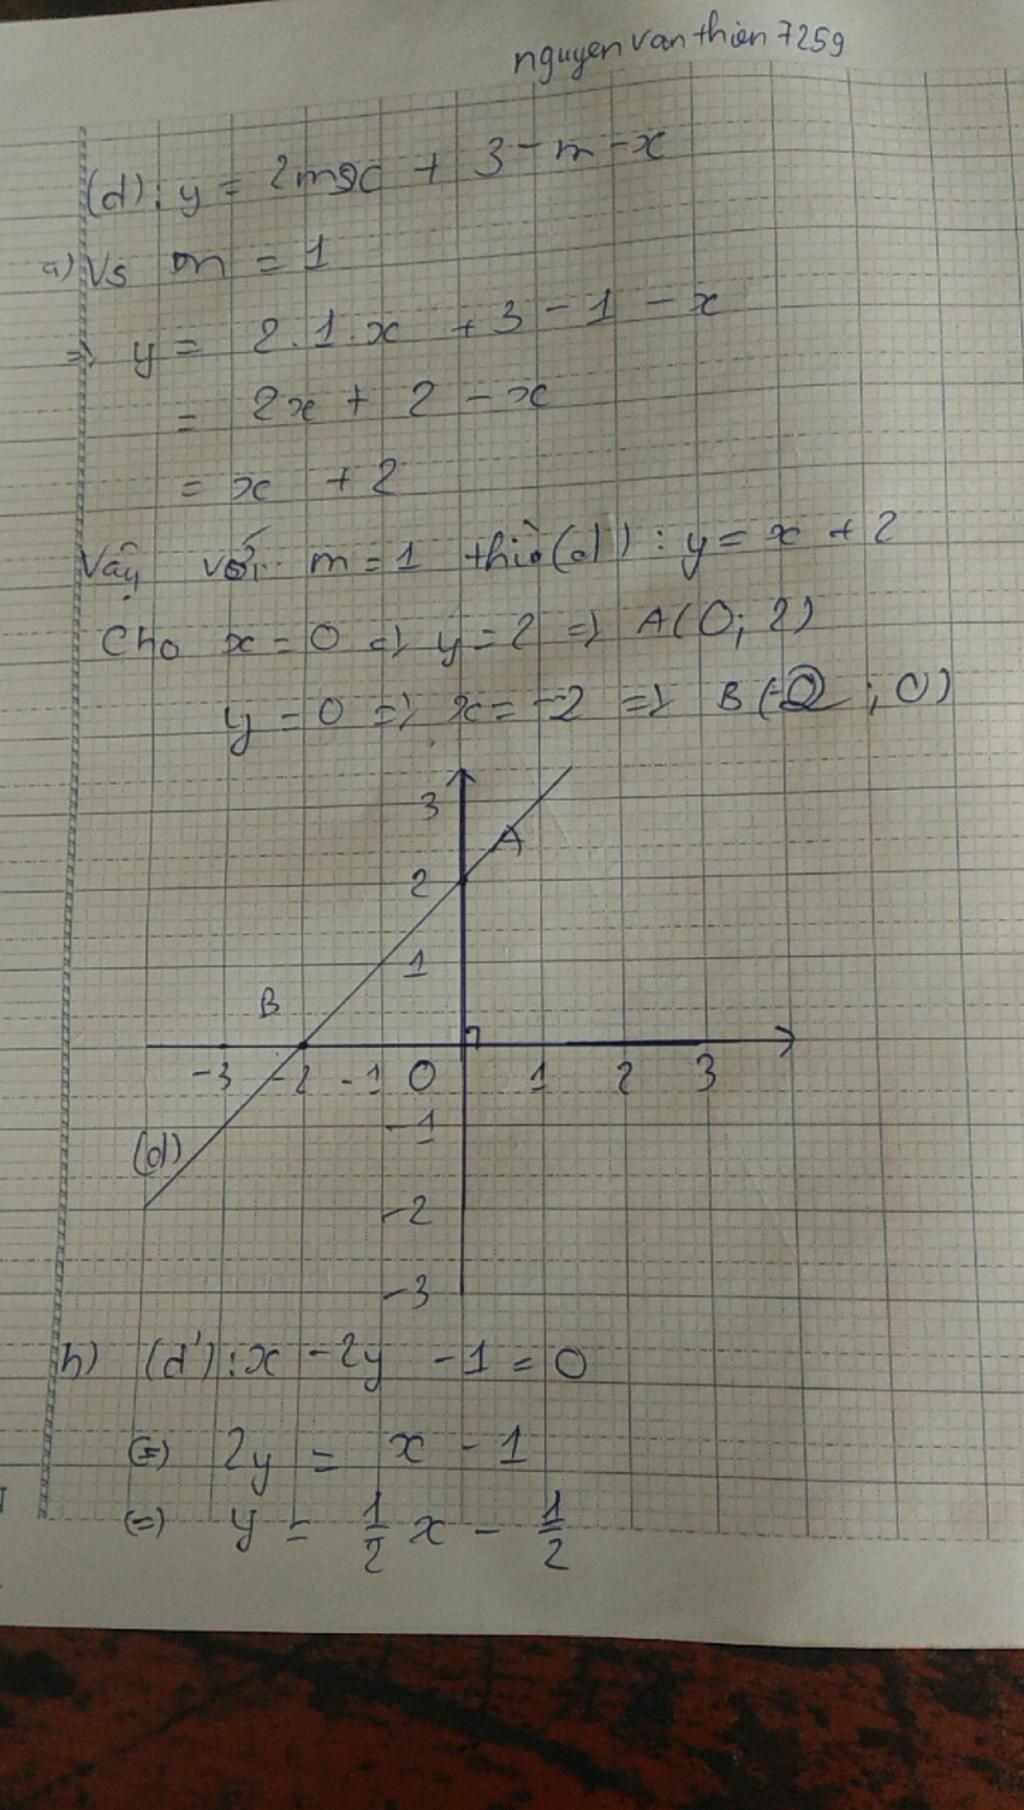 nguyen van thien 7259
(d): y = 2mx + 3 - m - x
a) Vs m = 1
=> y = 2.1.x + 3 - 1 - x
= 2x + 2 - x
= x + 2
Vậy với m = 1 thì (d): y = x + 2
Cho x = 0 => y = 2 => A(0; 2)
y = 0 => x = -2 => B(-2; 0)
3
A
2
1
B
-3 -2 -1 0 1 2 3
-1
(d)
-2
-3
b) (d'): x - 2y - 1 = 0
(=) 2y = x - 1
(=) y = 1/2 x - 1/2